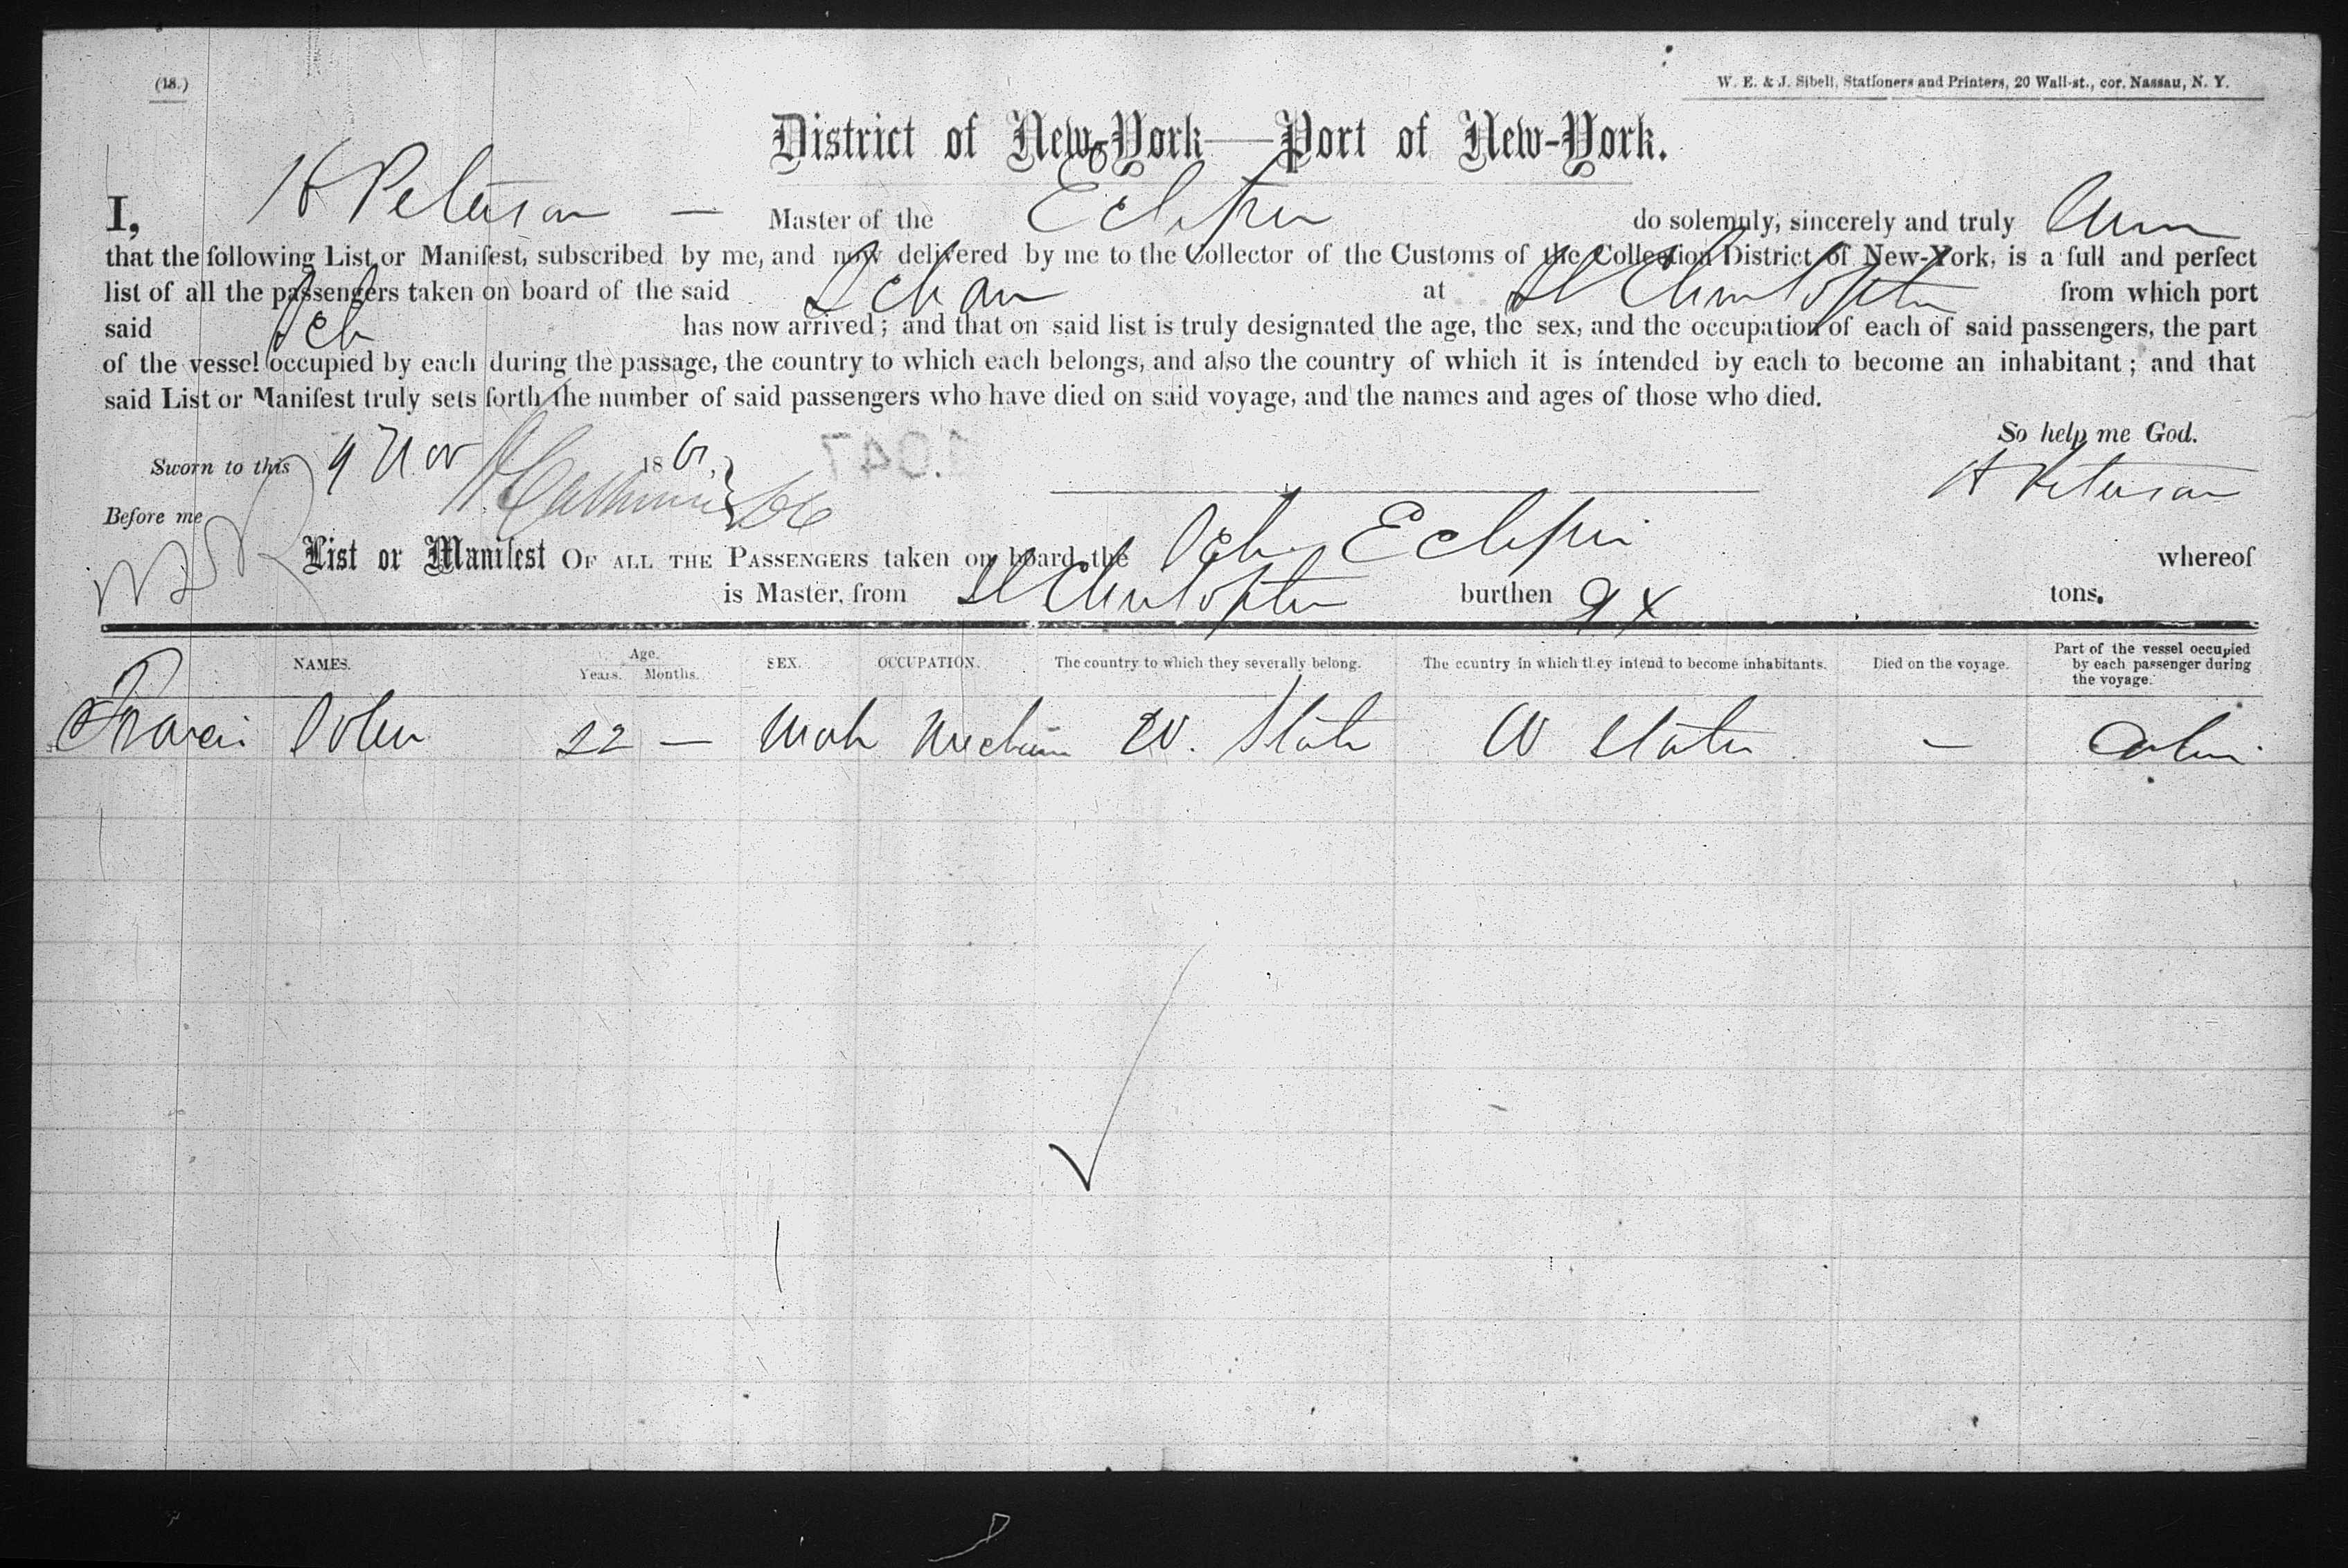 (18.)
W. E. & J. Sibell, Stationers and Printers, 20 Wall-st., cor. Nassau, N. Y.
District of New-York—Port of New-York.
I, H Peterson — Master of the do solemnly, sincerely and truly
that the following List or Manifest, subscribed by me, and now delivered by me to the Collector of the Customs of the Collection District of New-York, is a full and perfect
list of all the passengers taken on board of the said at St from which port
said Sch has now arrived; and that on said list is truly designated the age, the sex, and the occupation of each of said passengers, the part
of the vessel occupied by each during the passage, the country to which each belongs, and also the country of which it is intended by each to become an inhabitant; and that
said List or Manifest truly sets forth the number of said passengers who have died on said voyage, and the names and ages of those who died.
So help me God.
Sworn to this 9 Nov 18 1047
H Peterson
Before me
List or Manifest OF ALL THE PASSENGERS taken on board the Sch whereof
is Master, from St burthen tons.
NAMES. Age. Years. Months. SEX. OCCUPATION. The country to which they severally belong. The country in which they intend to become inhabitants. Died on the voyage. Part of the vessel occupied by each passenger during the voyage.
Francis 22 — Male U. State U States — Cabin